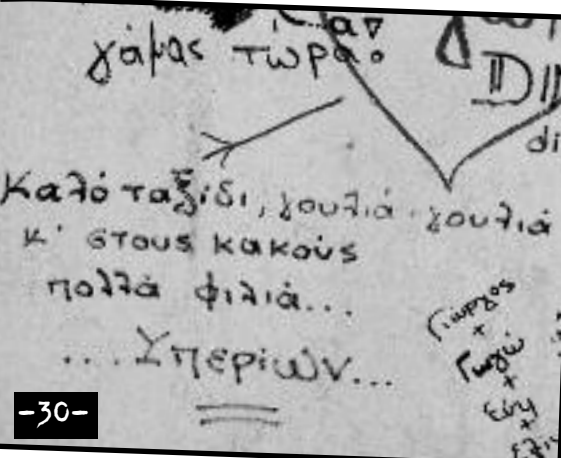 γάμας τώρα!
di
Καλό ταξίδι, γουλιά γουλιά
κ' στους κακούς
πολλά φιλιά...
....Υπεριών...
Γιώργος
+
Γωγώ
+
Εύη
+
-30-